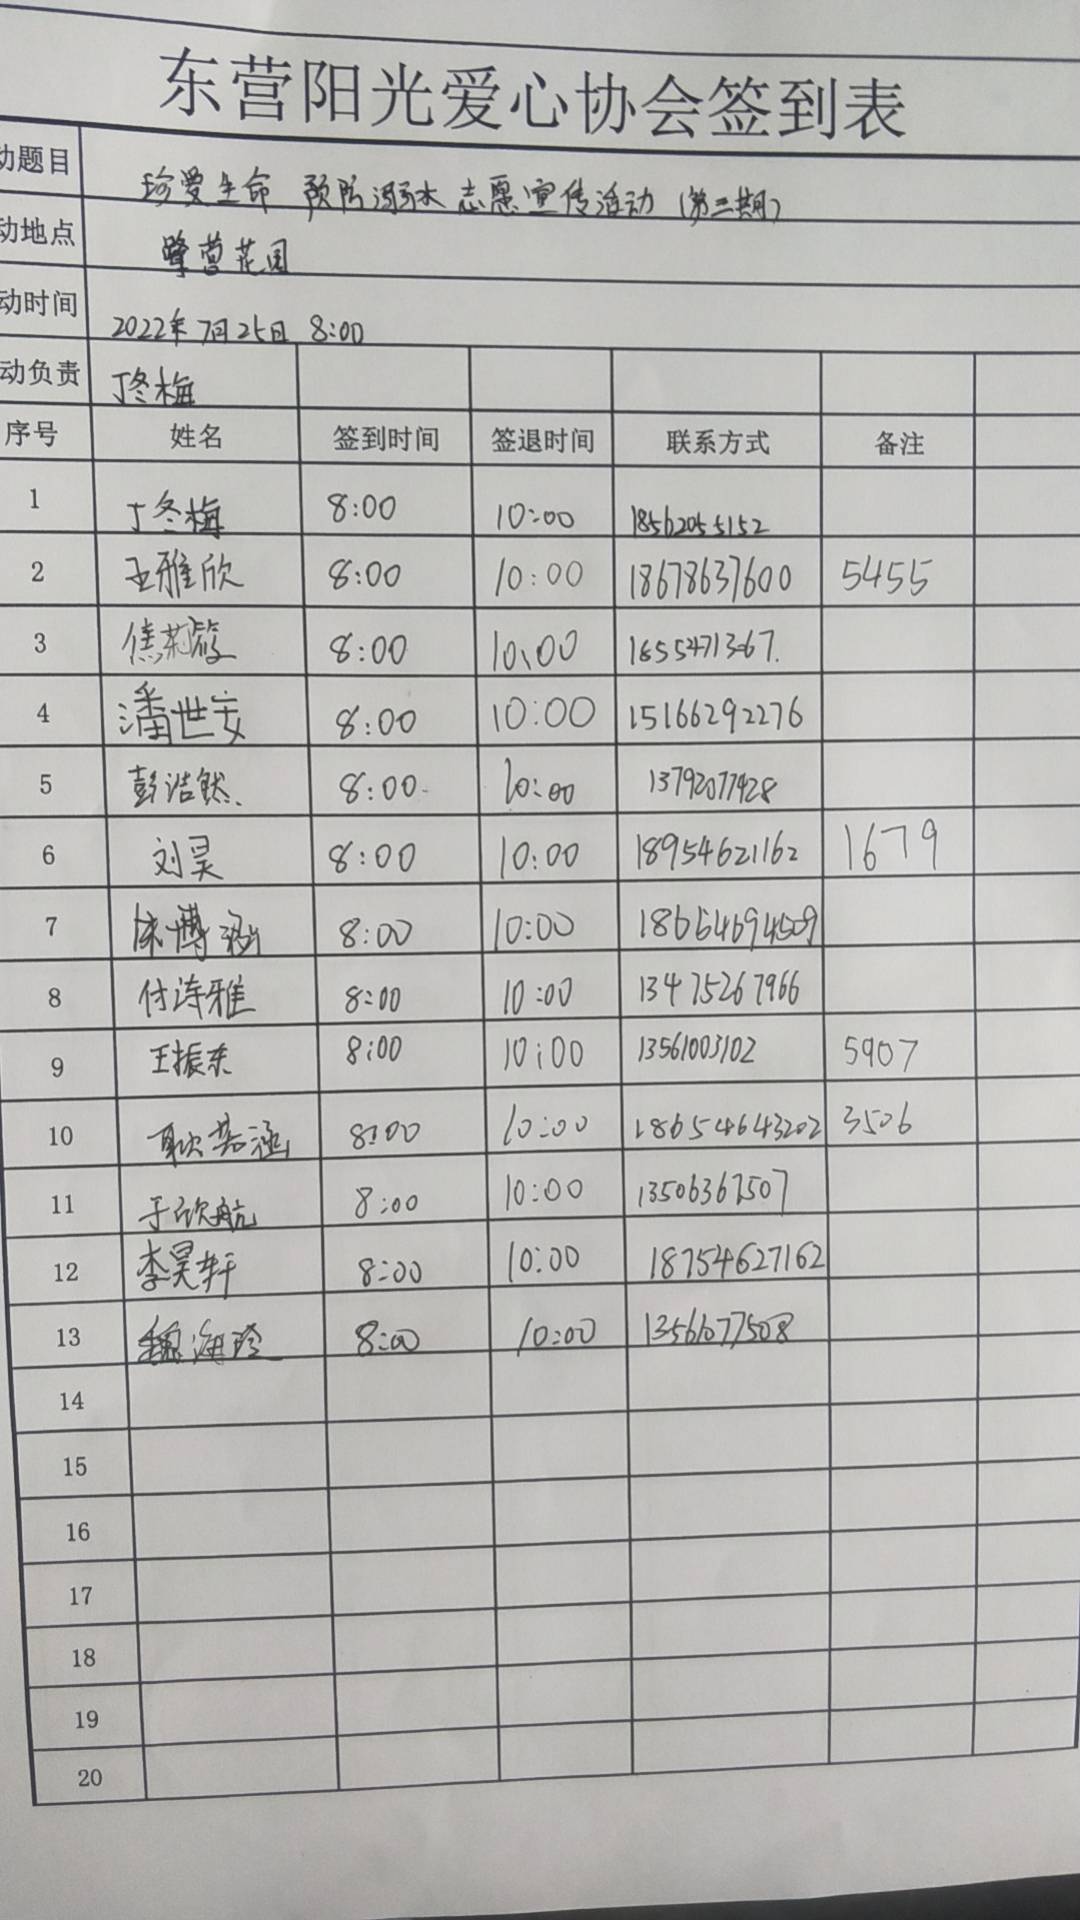 东营阳光爱心协会签到表
动题目 珍爱生命 预防溺水 志愿宣传活动（第三期）
动地点 营花园
动时间 2022年7月25日 8:00
动负责 丁冬梅
序号 姓名 签到时间 签退时间 联系方式 备注
1 丁冬梅 8:00 10:00 18562055152
2 王雅欣 8:00 10:00 18678637600 5455
3 焦莉筱 8:00 10:00 1855471367
4 潘世安 8:00 10:00 15166292276
5 彭浩然 8:00 10:00 13792077428
6 刘昊 8:00 10:00 18954621162 1679
7 博涵 8:00 10:00 18654694509
8 付诗雅 8:00 10:00 13475267966
9 王振东 8:00 10:00 13561003102 5907
10 耿若涵 8:00 10:00 18654643202 3506
11 于欣航 8:00 10:00 13506367507
12 李昊轩 8:00 10:00 18754627162
13 魏海玲 8:00 10:00 13561077508
14
15
16
17
18
19
20